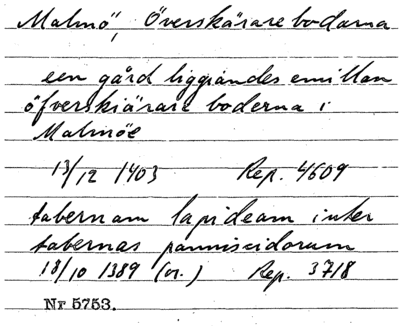 Malmö, Överskärarebodarna
een gård liggiandes emillan
öfverskiärare boderna i
Malmöe
13/12 1403 Rep. 4609
tabernam lapideam inter
tabernas panniscidorum
18/10 1389 (or.) Rep. 3718
Nr 5753.